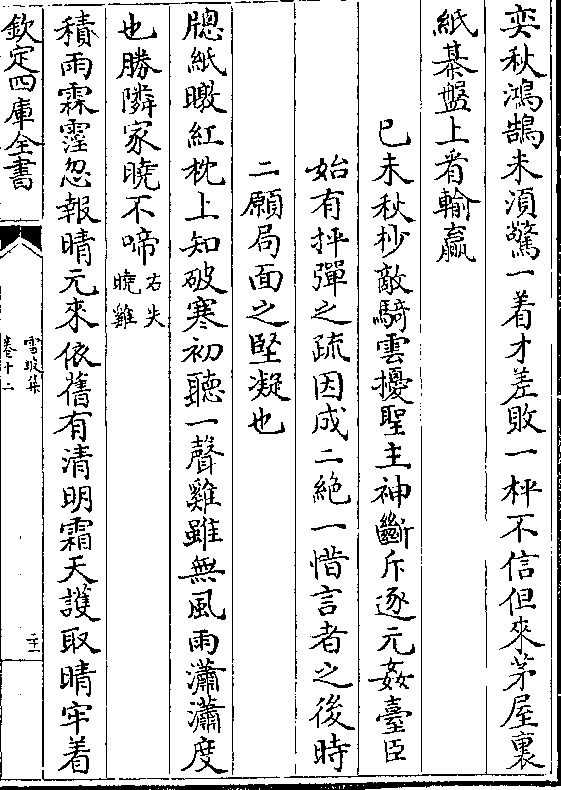 奕秋鴻鵠未湏驚一着才差敗一枰不信但來茅屋裏
紙棊盤上看輸贏
已未秋杪敵騎雲擾聖主神斷斥逐元姦臺臣
始有抨彈之疏因成二絶一惜言者之後時
二願局面之堅凝也
牕紙暾紅枕上知破寒初聽一聲雞雖無風雨瀟瀟度
也勝隣家曉不啼右失曉雞
積雨霖霪忽報晴元來依舊有清明霜天護取晴牢着
欽定四庫全書
雪坡集
卷十二
二十一